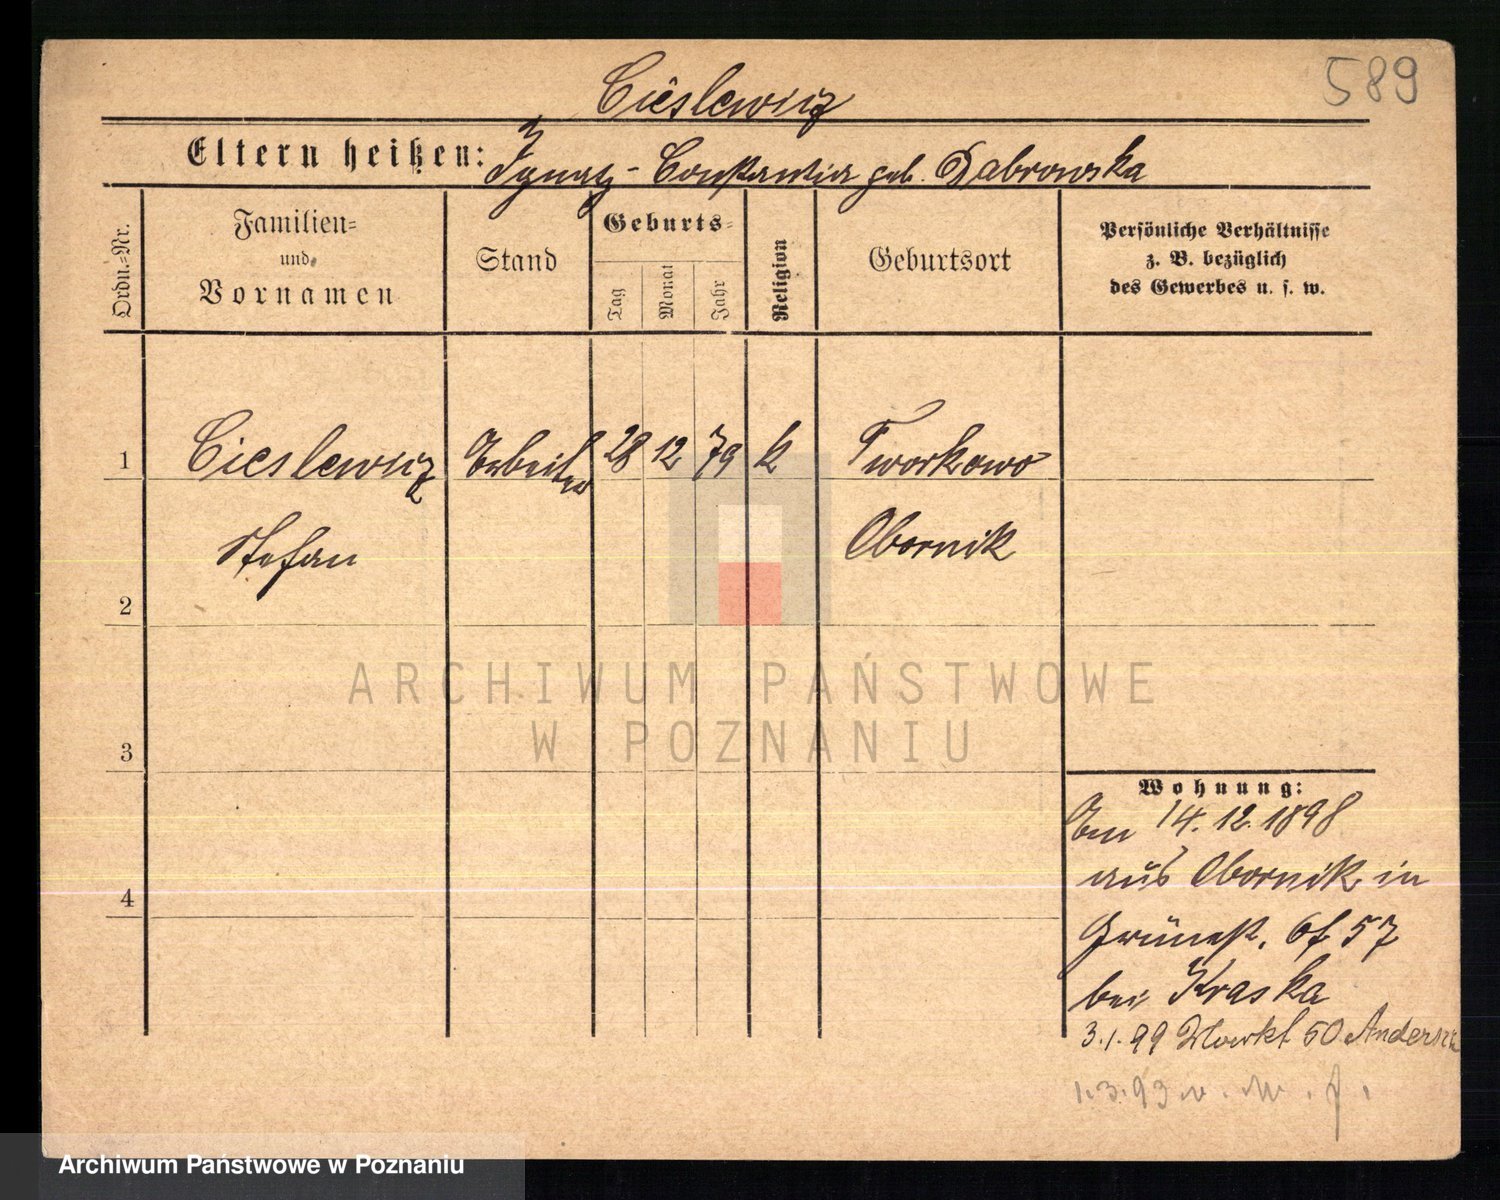 589
Cieslewicz
Eltern heißen: Ignatz - Constantia geb. Dabrowska
Ordn.-Nr.
Familien-
und
Vornamen
Stand
Geburts-
Tag
Monat
Jahr
Religion
Geburtsort
Persönliche Verhältnisse
z. B. bezüglich
des Gewerbes u. s. w.
1 Cieslewicz Arbeiter 28 12 79 k Tworkowo
Stefan Obornik
2
3
4
ARCHIWUM PAŃSTWOWE
W POZNANIU
Wohnung:
Am 14. 12. 1898
aus Obornik in
Grünest. 57
bei Kraska
3.1.99 Markt 50
Archiwum Państwowe w Poznaniu